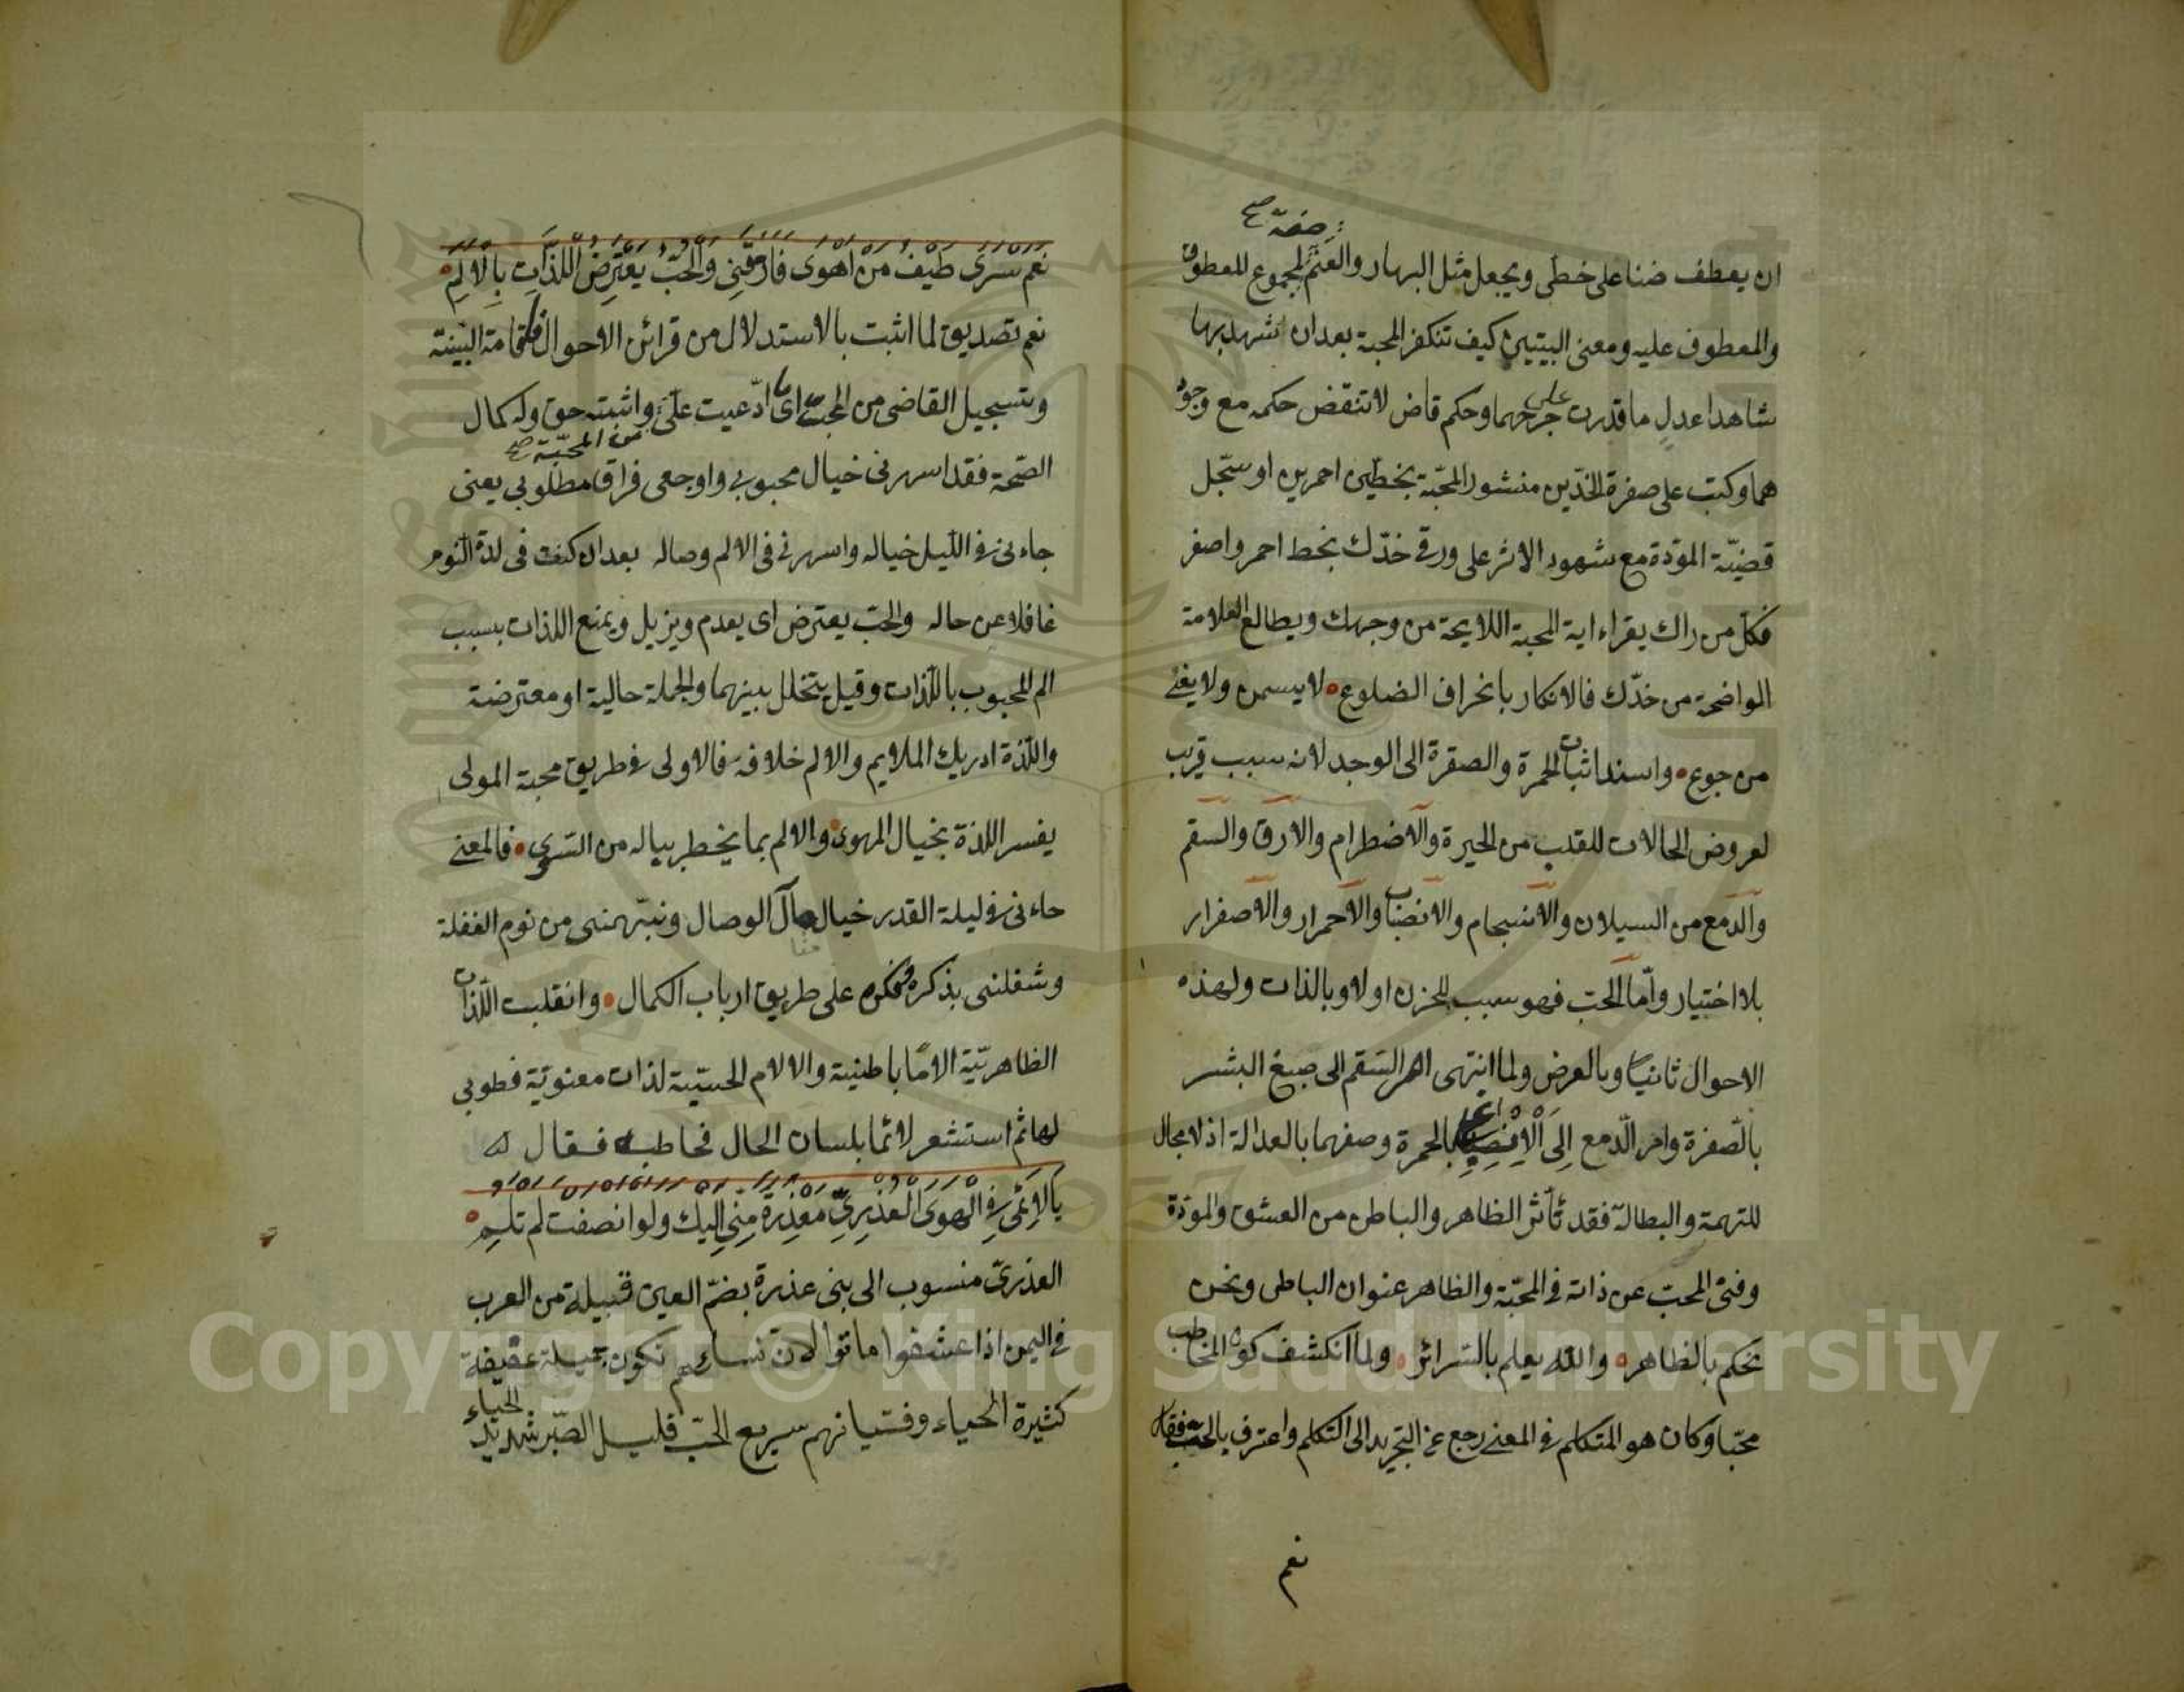 صفة صح
ان يعطف ضنا على خطى ويجعل مثل البهار والعنم لمجموع المعطوف
والمعطوف عليه ومعنى البيتين كيف تنكر المحبة بعد ان شهد بها
شاهدا عدل ما قدرت على جرحهما وحكم قاض لا تنقض حكمه مع وجود
هما وكتب على صفرة الخدّين منشور المحبّة بخطين احمرين او سجّل
قضيّة المودّة مع شهود الاثر على ورق خدّك بخط احمر واصفر
فكل من راك يقراء اية المحبة اللايحة من وجهك ويطالع العلامة
الواضحة من خدّك فالانكار بانحراف الضلوع لا يسمن ولا يغنى
من جوع واسند اثبات الحمرة والصفرة الى الوجد لانه سبب قريب
لعروض الحالات للقلب من الحيرة والاضطرام والارق والسقم
والدمع من السيلان والانسجام والانصباب والاحمرار والاصفرار
بلا اختيار وامّا الحبّ فهو سبب للحزن اولا وبالذات ولهذه
الاحوال ثانيا وبالعرض ولما انتهى امر السّقم الى صبغ البشر
بالصّفرة وامر الدّمع الى الانصباغ بالحمرة وصفهما بالعدالة اذ لا مجال
للتهمة والبطالة فقد تأثر الظاهر والباطن من العشق والمودّة
وفنى المحبّ عن ذاته فى المحبّة والظاهر عنوان الباطن ونحن
نحكم بالظاهر والله يعلم بالسّرائر ولما انكشف كون المخاطب
محبّا وكان هو المتكلم فى المعنى رجع عن التجريد الى التكلم واعترف بالحبّ فقال
نعم
نعم سرى طيف من اهوى فارقنى والحبّ يعترض اللذات بالالم
نعم تصديق لما اثبت بالاستدلال من قرائن الاحوال اقامة البيّنة
وتسجيل القاضى من المحبة اى ما ادّعيت علىّ واثبته حق وله كمال
من المحبّة صح
الصّحة فقد اسهرنى خيال محبوبى واوجعى فراق مطلوبى يعنى
جاءنى فى الليل خياله واسهرنى فى الالم وصاله بعد ان كنت فى لذة النّوم
غافلا عن حاله والحبّ يعترض اى يعدم ويزيل ويمنع اللذات بسبب
الم المحبوب باللّذات وقيل يتخلل بينهما والجملة حالية او معترضة
واللّذة ادريك الملايم والالم خلافه فالاولى فى طريق محبة المولى
يفسر اللذة بخيال المهوى والالم بما يخطر بباله من السّوى فالمعنى
جاءنى فى ليلة القدر خيال مآل الوصال ونبّهنى من نوم الغفلة
وشغلنى بذكره وفكره على طريق ارباب الكمال وانقلبت اللّذات
الظاهريّة الامّا باطنية والالام الحسّيّة لذات معنويّة فطوبى
لها ثم استشعر لائما بلسان الحال فخاطبه فقال له
يا لائمى فى الهوى العذرىّ معذرة منّى اليك ولو انصفت لم تلم
العذرىّ منسوب الى بنى عذرة بضمّ العين قبيلة من العرب
فى اليمن اذا عشقوا ماتوا لانّ نسائهم تكون جميلة عفيفة
كثيرة الحياء وفتيانهم سريع الحبّ قليل الصّبر شديد
الحياء
Copyright © King Saud University
1957